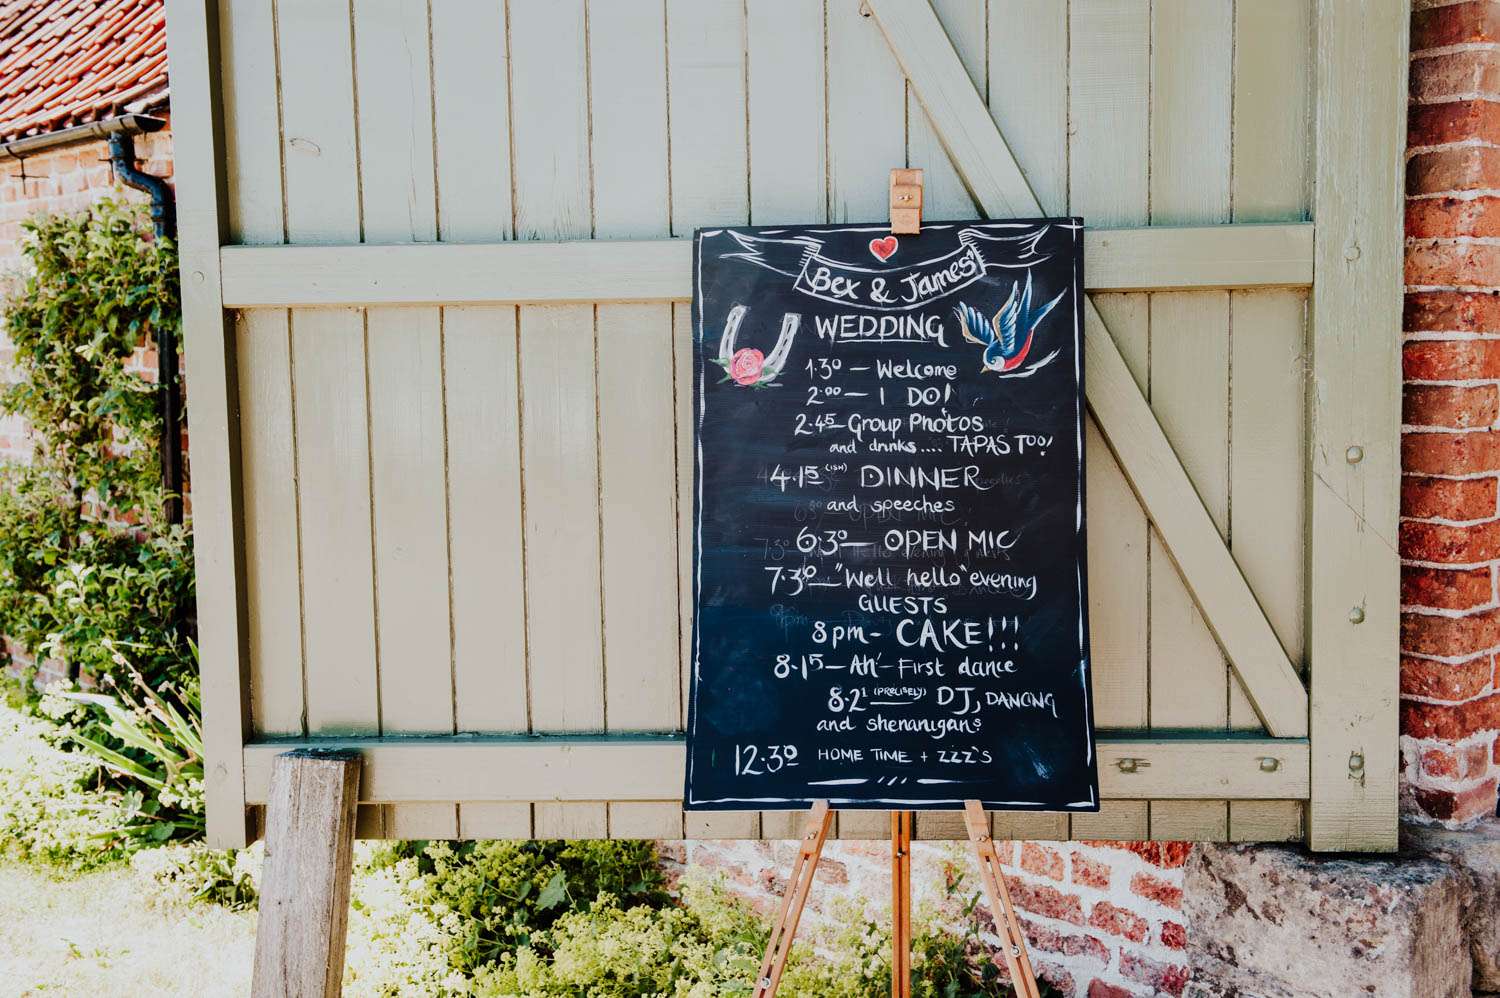 Bex & James'
WEDDING
1.30 — Welcome
2.00 — I DO!
2.45 — Group Photos
and drinks.... TAPAS TOO!
4.15 (ISH) DINNER
and speeches
6.30 — OPEN MIC
7.30 — "Well hello" evening
GUESTS
8pm - CAKE!!!
8.15 — Ah' - First dance
8.21 (PRECISELY) DJ, DANCING
and shenanigans
12.30 HOME TIME + ZZZ'S